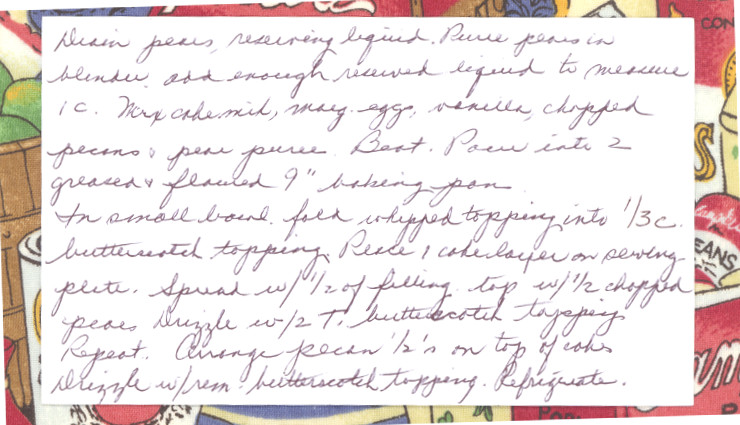 Drain pears, reserving liquid. Puree pears in
blender. add enough reserved liquid to measure
1 c. Mix cake mix, marg. eggs, vanilla, chopped
pecans & pear puree. Beat. Pour into 2
greased & floured 9" baking pan
In small bowl. fold whipped topping into 1/3 c.
butterscotch topping. Place 1 cake layer on serving
plate. Spread w/ 1/2 of filling. top w/ 1/2 chopped
pears Drizzle w/2 T. butterscotch topping
Repeat. Arrange pecan 1/2's on top of cake
Drizzle w/rem. butterscotch topping. Refrigerate.
CON
EANS